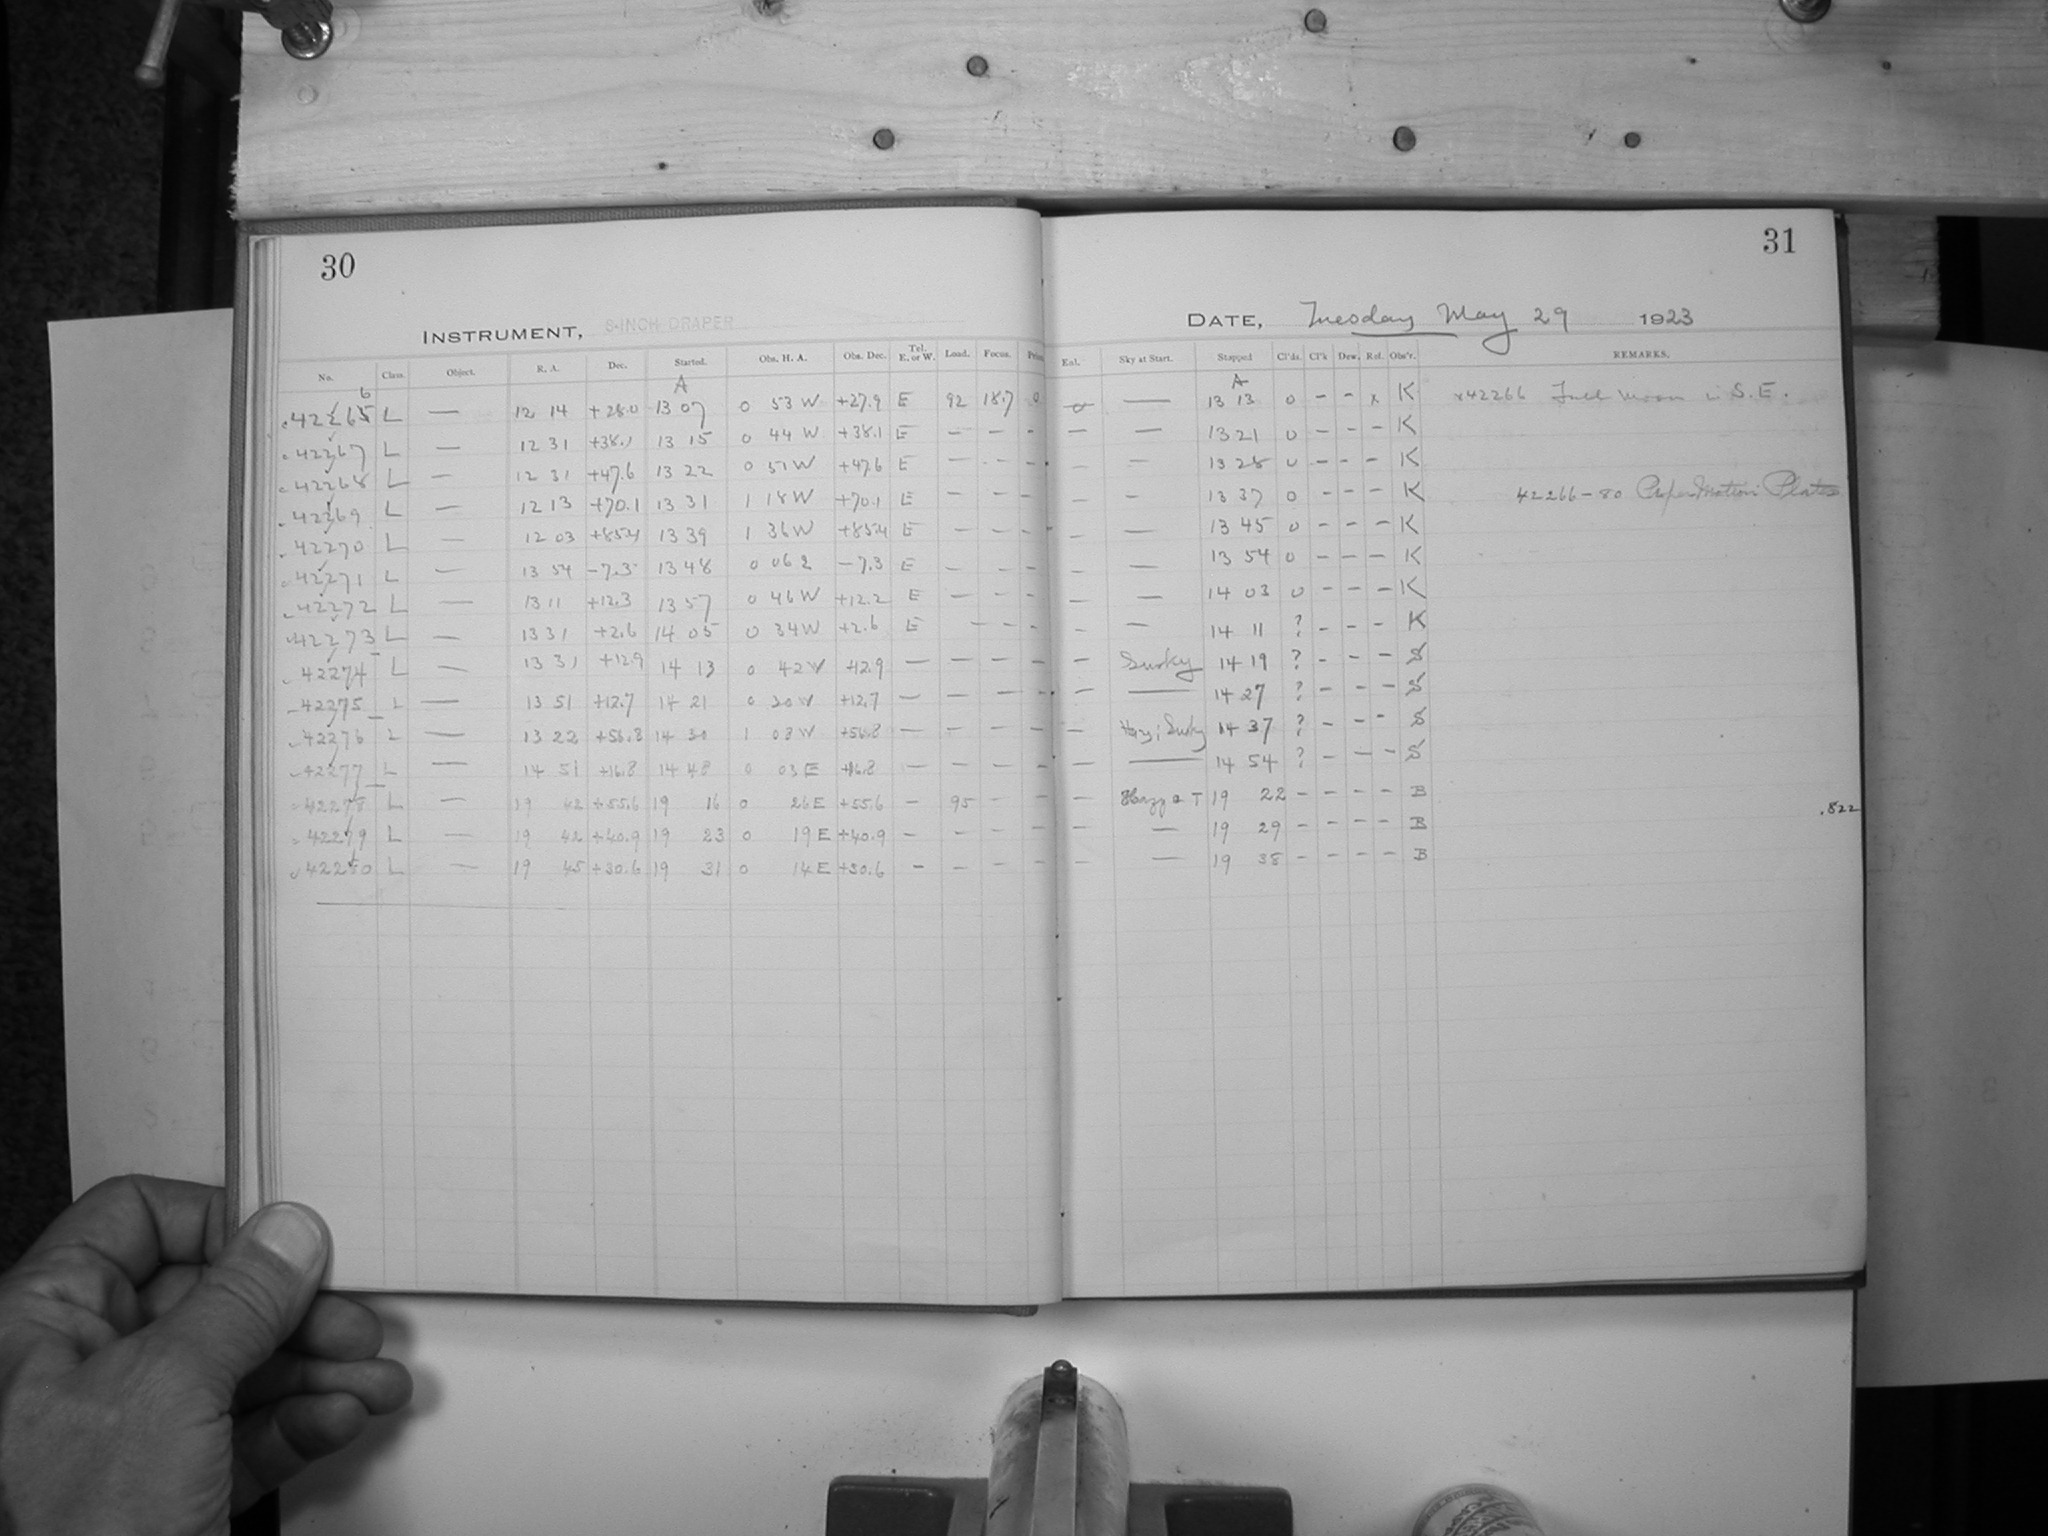 30
31
INSTRUMENT, 8-INCH DRAPER
DATE, Tuesday May 29 1923
No. Class. Object. R. A. Dec. Started. Obs. H. A. Obs. Dec. Tel. E. or W. Load. Focus. Enl. Sky at Start. Stopped Cl'ds. Cl'k Dew. Ref. Obs'r. REMARKS.
6 A A
42265 L — 12 14 +28.0 13 07 0 53 W +27.9 E 92 18.7 0 0 — 13 13 0 - - x K x42266 Full Moon in S.E.
42267 L — 12 31 +38.1 13 15 0 44 W +38.1 E - - - - — 13 21 0 - - - K
42268 L — 12 31 +47.6 13 22 0 51 W +47.6 E - - - - — 13 28 0 - - - K
42269 L — 12 13 +70.1 13 31 1 18 W +70.1 E - - - - - 13 37 0 - - - K 42266-80 Proper Motion Plates
42270 L — 12 03 +85.4 13 39 1 36 W +85.4 E - - - - — 13 45 0 - - - K
42271 L — 13 54 -7.3 13 48 0 06 E -7.3 E - - - - — 13 54 0 - - - K
42272 L — 13 11 +12.3 13 57 0 46 W +12.2 E - - - - — 14 03 0 - - - K
42273 L — 13 31 +2.6 14 05 0 34 W +2.6 E - - - - — 14 11 ? - - - K
42274 L — 13 31 +12.9 14 13 0 42 W +12.9 - - - - - 14 19 ? - - - S
42275 L — 13 51 +12.7 14 21 0 30 W +12.7 - - - - - — 14 27 ? - - - S
42276 L — 13 22 +56.8 14 30 1 08 W +56.8 - - - - - 14 37 ? - - - S
42277 L — 14 51 +16.8 14 48 0 03 E +16.8 - - - - - — 14 54 ? - - - S
42278 L — 19 42 +55.6 19 16 0 26 E +55.6 - 95 - - - 19 22 - - - - B
.822
42279 L — 19 42 +40.9 19 23 0 19 E +40.9 - - - - - — 19 29 - - - - B
42280 L — 19 45 +30.6 19 31 0 14 E +30.6 - - - - - — 19 38 - - - - B